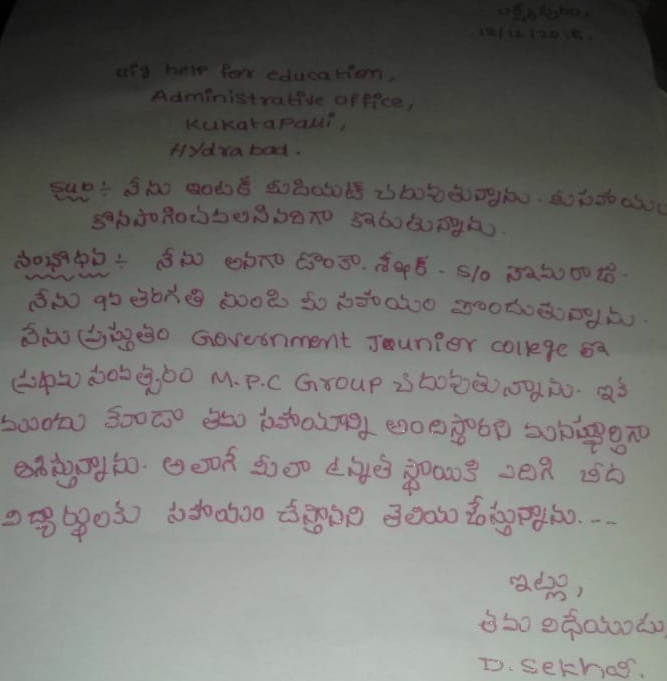 లక్ష్మీపురం,
18/12/2015.
aig help for education,
Administrative office,
Kukatapalli,
Hydrabad.
నేను ఇంటర్ మీడియట్ చదువుతున్నాను. మీ సహాయం
కొనసాగించవలసినదిగా కోరుతున్నాను.
సంభోధన :- నేను అనగా దొంతా. శేఖర్. S/o సోమరాజు.
నేను 9వ తరగతి నుండి మీ సహాయం పొందుతున్నాను.
నేను ప్రస్తుతం Government Jounior college లో
ప్రథమ సంవత్సరం M.P.C Group చదువుతున్నాను. ఇక
ముందు కూడా తమ సహాయాన్ని అందిస్తారని మనస్పూర్తిగా
ఆశిస్తున్నాను. అలాగే మీలా ఉన్నత స్థాయికి ఎదిగి బీద
విద్యార్థులకు సహాయం చేస్తానని తెలియ జేస్తున్నాను. ---
ఇట్లు,
తమ విధేయుడు,
D. Sekhar.